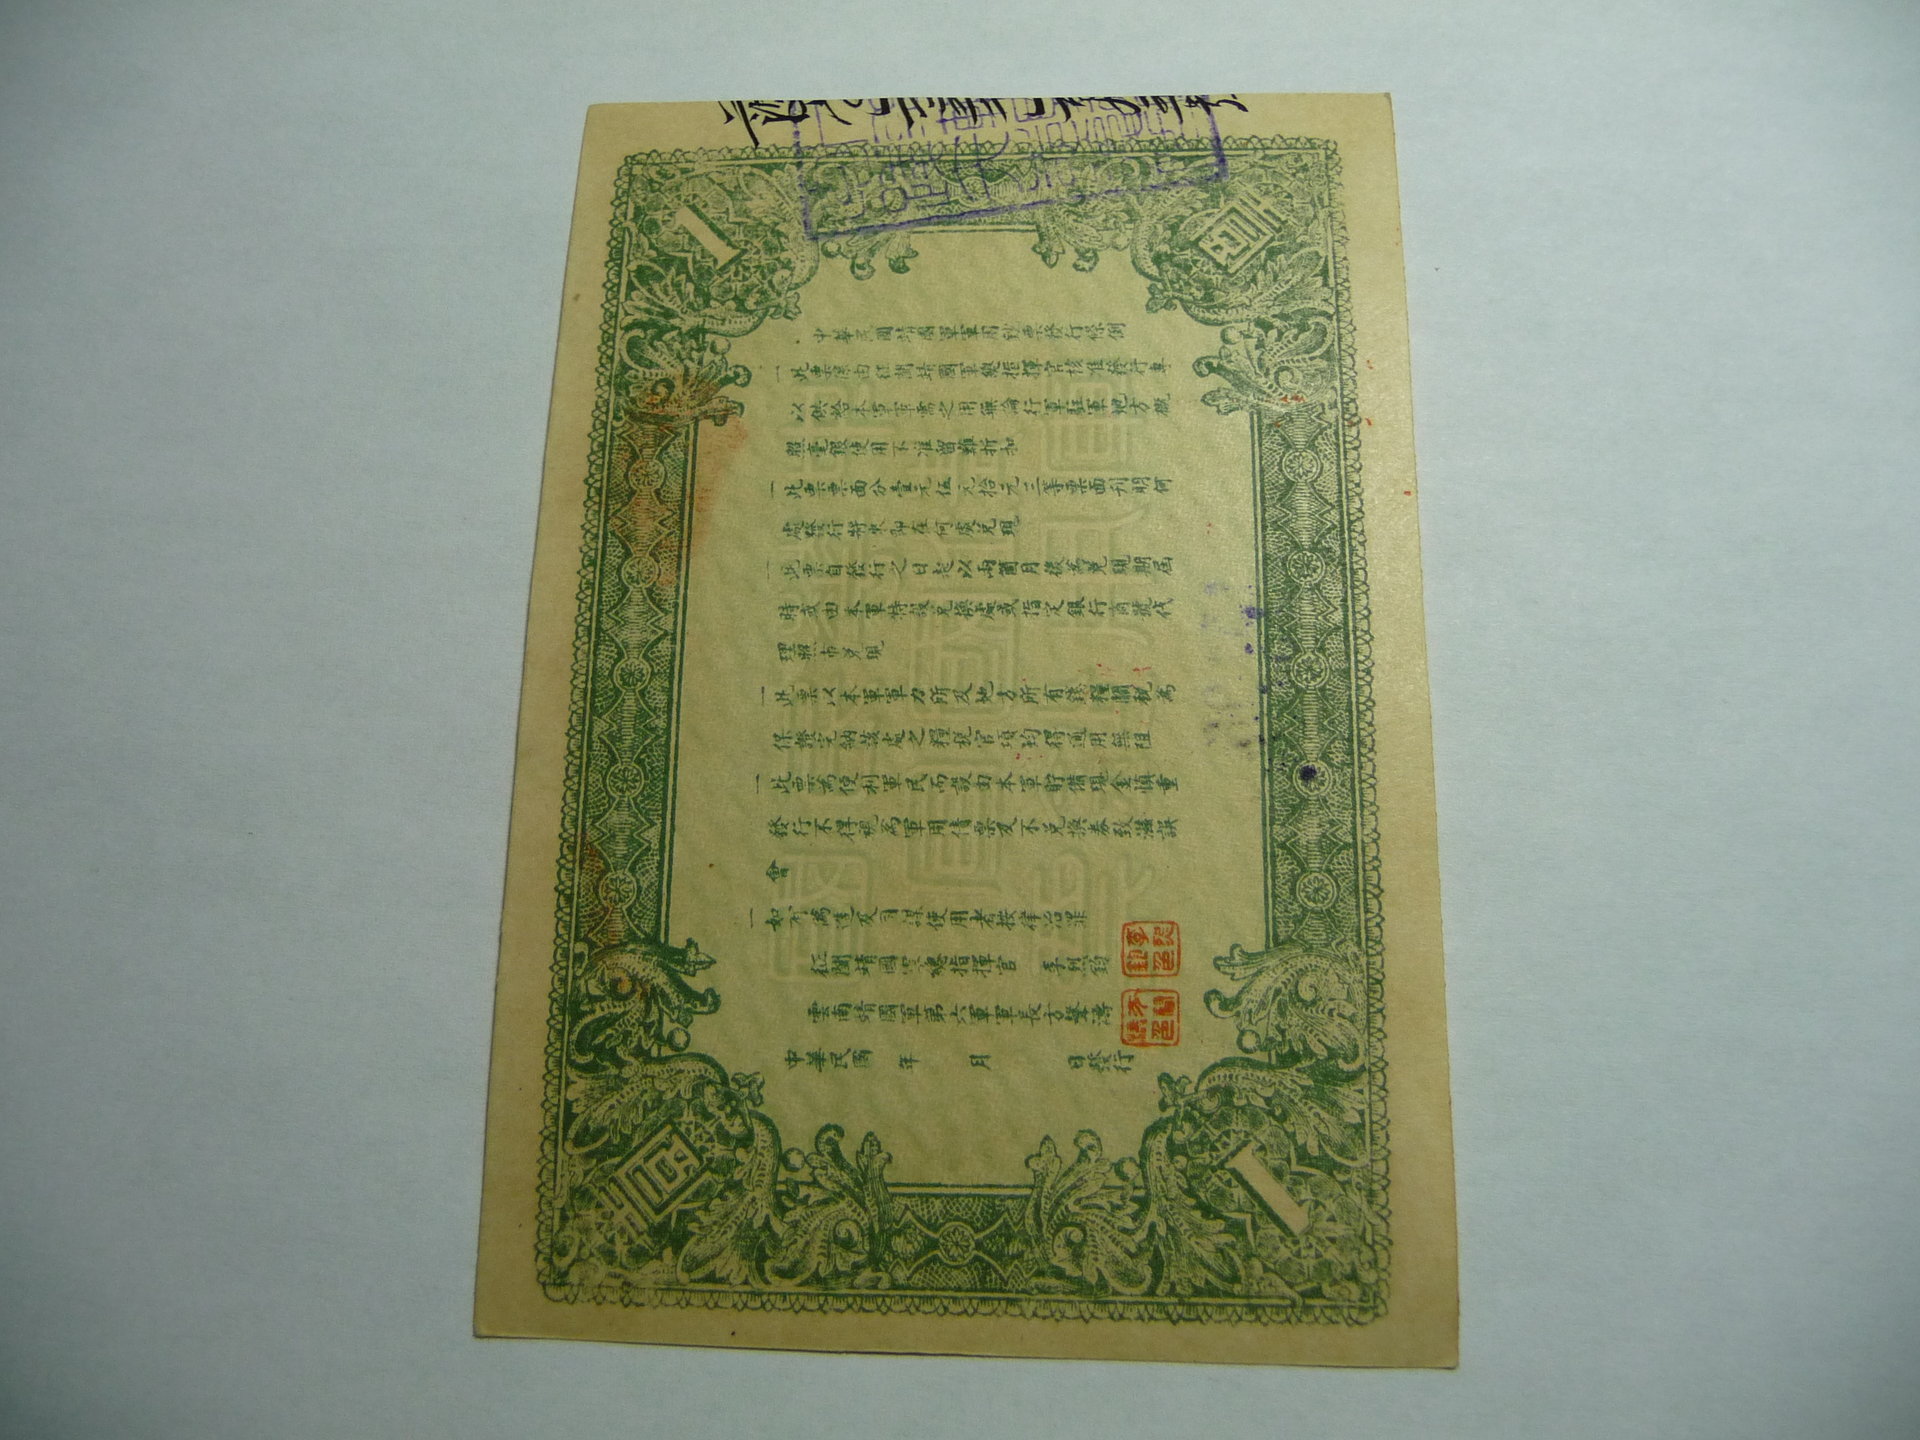 中華民國靖國軍軍用鈔票發行條例
一此票係由征閩靖國軍總指揮官核准發行專
以供給本軍軍需之用無論行軍駐軍地方概
照毫銀使用不准留難折扣
一此票票面分壹元伍元拾元三等票面刊明何
處發行將來即在何處兌現
一此票自發行之日起以兩箇月後為兌現期屆
時或由本軍特設兌換處或指定銀行商號代
理照市兌現
一此票以本軍軍力所及地方所有錢糧關稅為
保證完納該處之糧稅官項均得通用無阻
一此票為便利軍民而設由本軍貯備現金慎重
發行不得視為軍用債票及不兌換券致滋誤
會
一如有偽造及同謀使用者按律治罪
征閩靖國軍總指揮官 李烈鈞
雲南靖國軍第六軍軍長方聲濤
中華民國 年 月 日發行
1
壹圓
壹圓
1